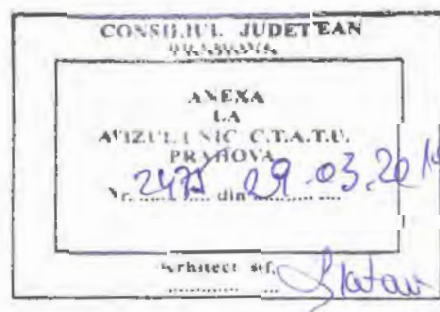 CONSILIUL JUDETEAN
PRAHOVA
ANEXA
LA
AVIZUL UNIC C.T.A.T.U.
PRAHOVA
Nr. din 29.03.20
Arhitect sef,